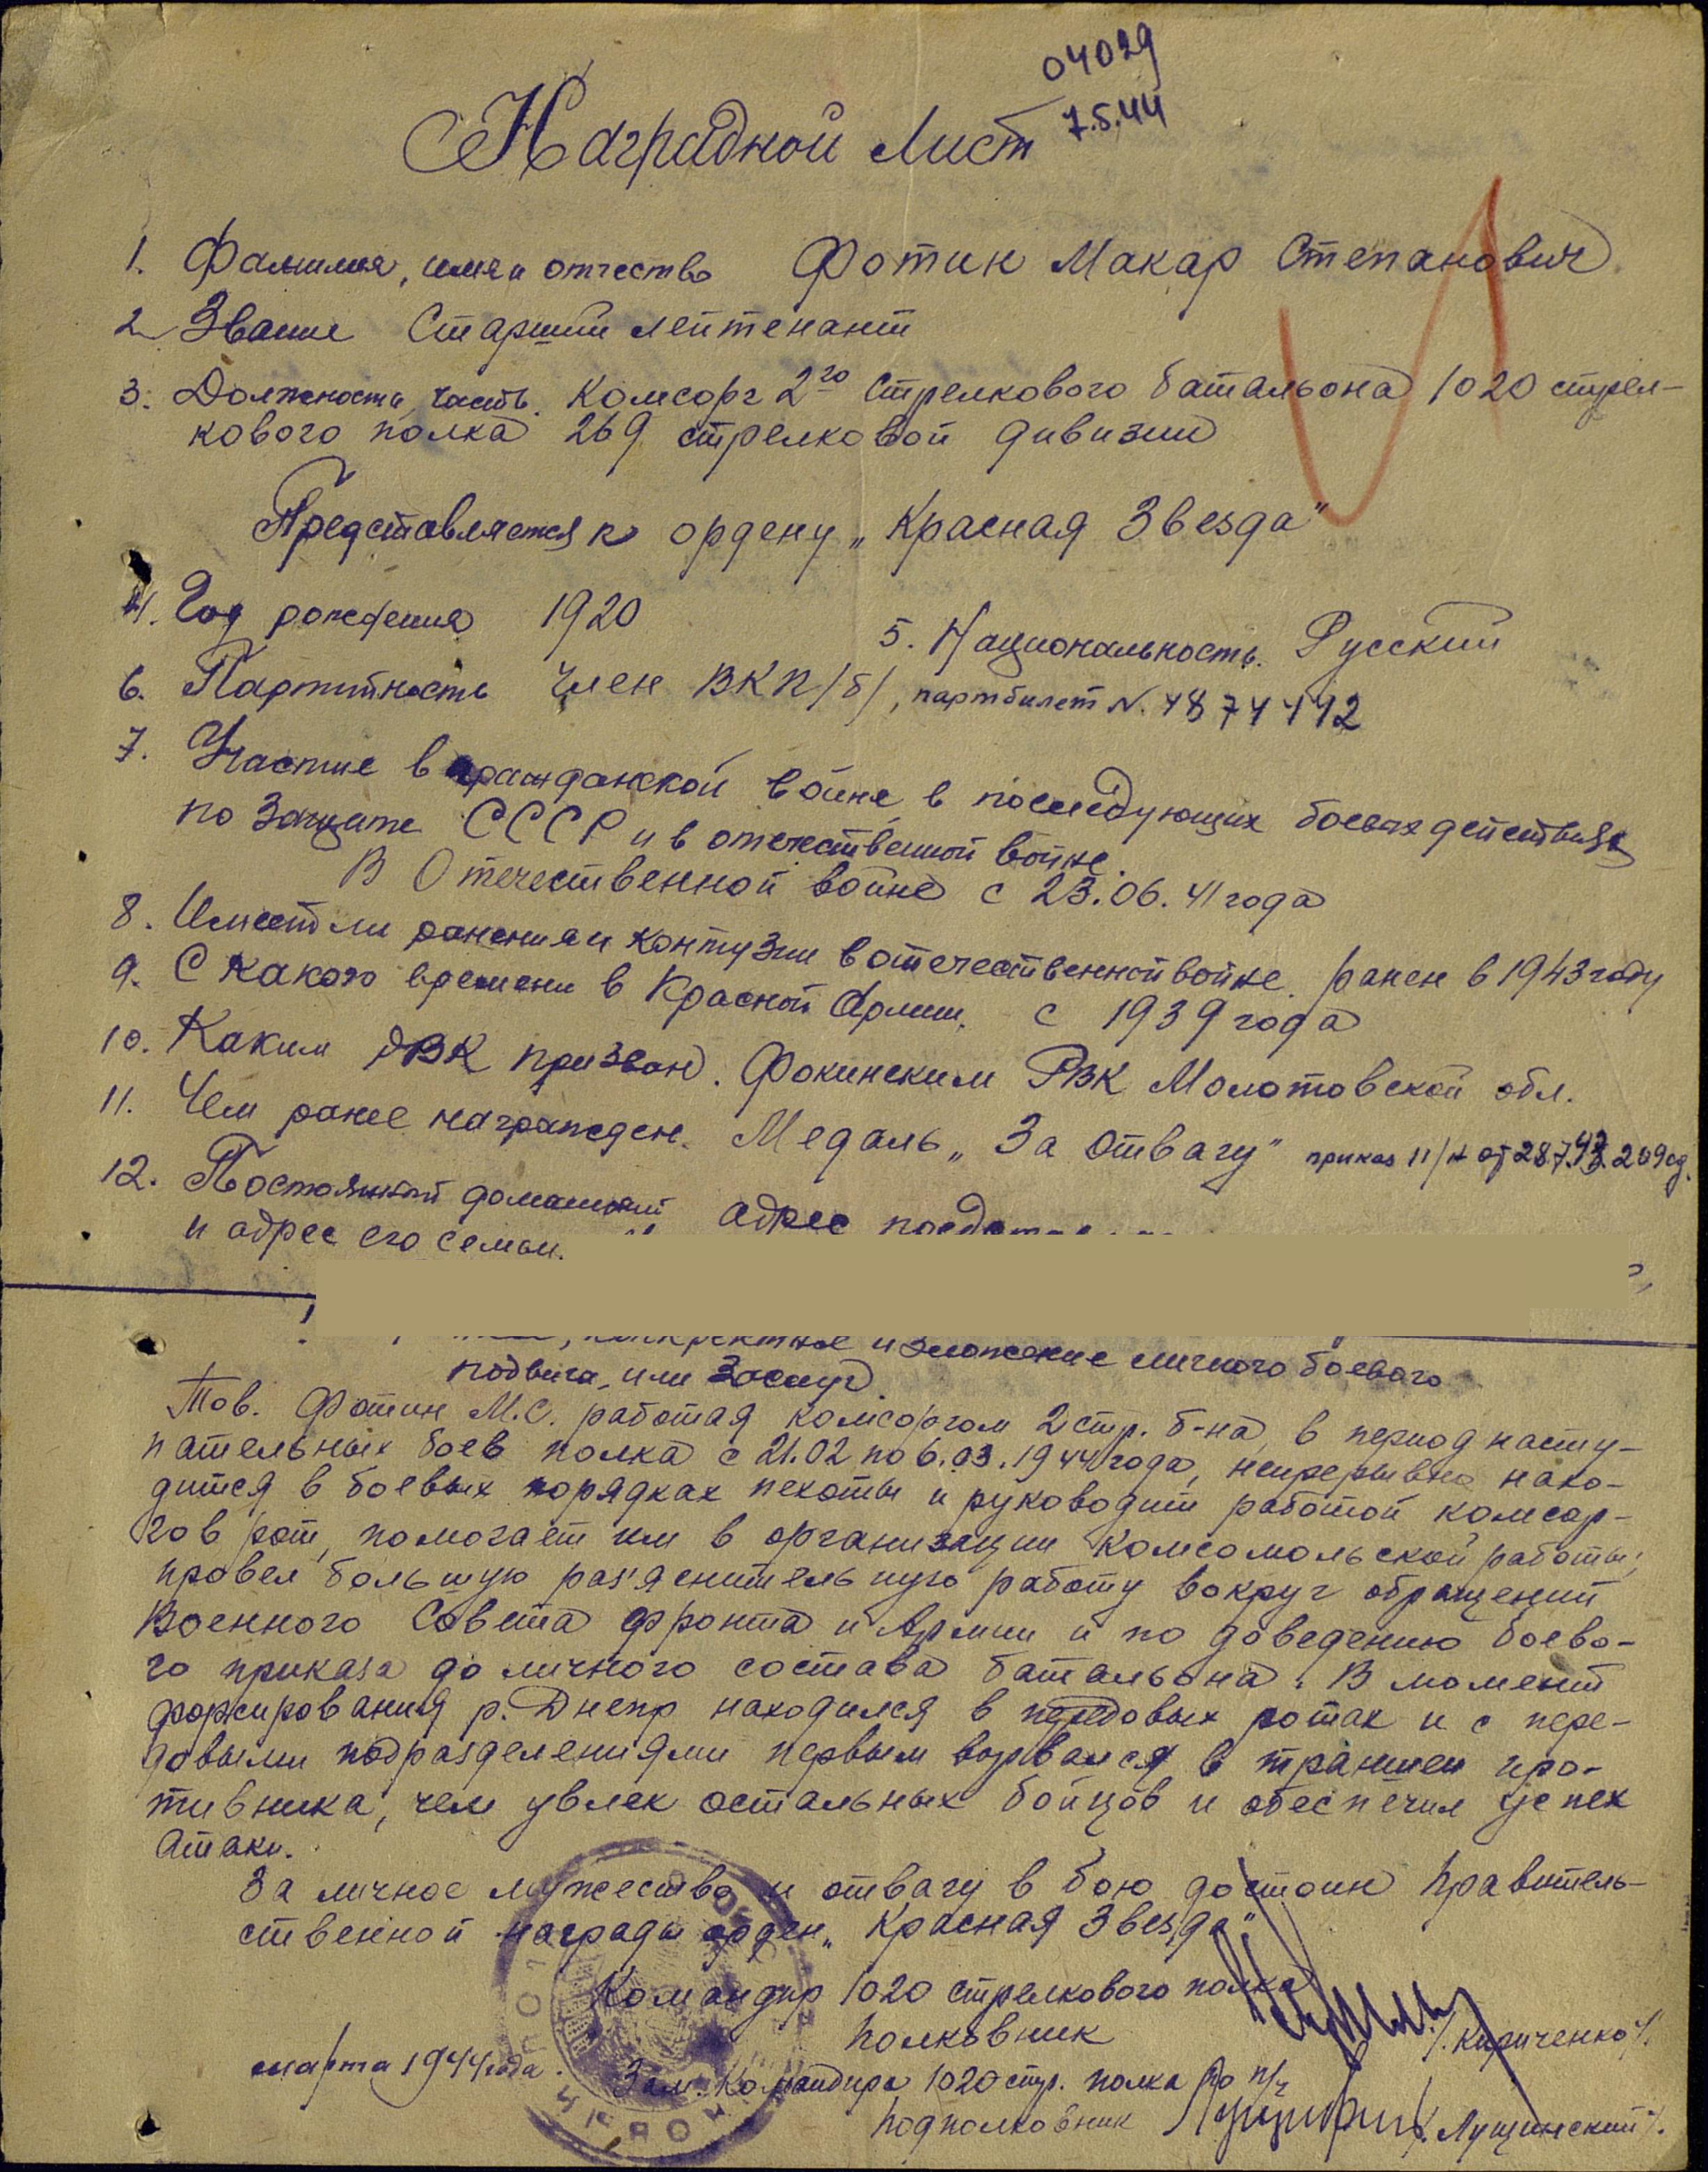 04029
7.5.44
Наградной лист
1. Фамилия, имя и отчество Фотин Макар Степанович
2 Звание Старший лейтенант
3. Должность, часть. Комсорг 2го стрелкового батальона 1020 стрел-
кового полка 269 стрелковой дивизии
Представляется к ордену „Красная Звезда"
4. Год рождения 1920
5. Национальность. Русский
6. Партийность Член ВКП/б/, партбилет N.
7. Участие в гражданской войне, в последующих боевых действиях
по защите СССР и в отечественной войне.
В Отечественной войне с 23.06.41 года
8. Имеет ли ранения и контузии в отечественной войне. ранен в 1943 году
9. С какого времени в Красной Армии. с 1939 года
10. Каким РВК призван. Фокинским РВК Молотовской обл.
11. Чем ранее награжден. Медаль „За отвагу" приказ 11/н от 28.7.43. 269сд.
12. Постоянный домашний адрес
и адрес его семьи.
конкретное изложение личного боевого
подвига, или заслуг.
Тов. Фотин М.С. работая комсоргом 2 стр. б-на, в период насту-
пательных боев полка с 21.02 по 6.03.1944 года, непрерывно нахо-
дится в боевых порядках пехоты и руководит работой комсор-
гов рот, помогает им в организации комсомольской работы,
провел большую раз'яснительную работу вокруг обращений
Военного Совета фронта и Армии и по доведению боево-
го приказа до личного состава батальона. В момент
форсирования р. Днепр находился в передовых ротах и с пере-
довыми подразделениями первым ворвался в траншеи про-
тивника, чем увлек остальных бойцов и обеспечил успех
атаки.
За личное мужество и отвагу в бою достоин правитель-
ственной награды орден „Красная Звезда"
Командир 1020 стрелкового полка
полковник /.Кириченко/.
марта 1944 года.
Зам. Командира 1020 стр. полка по п/ч
подполковник /.Лущинский/.